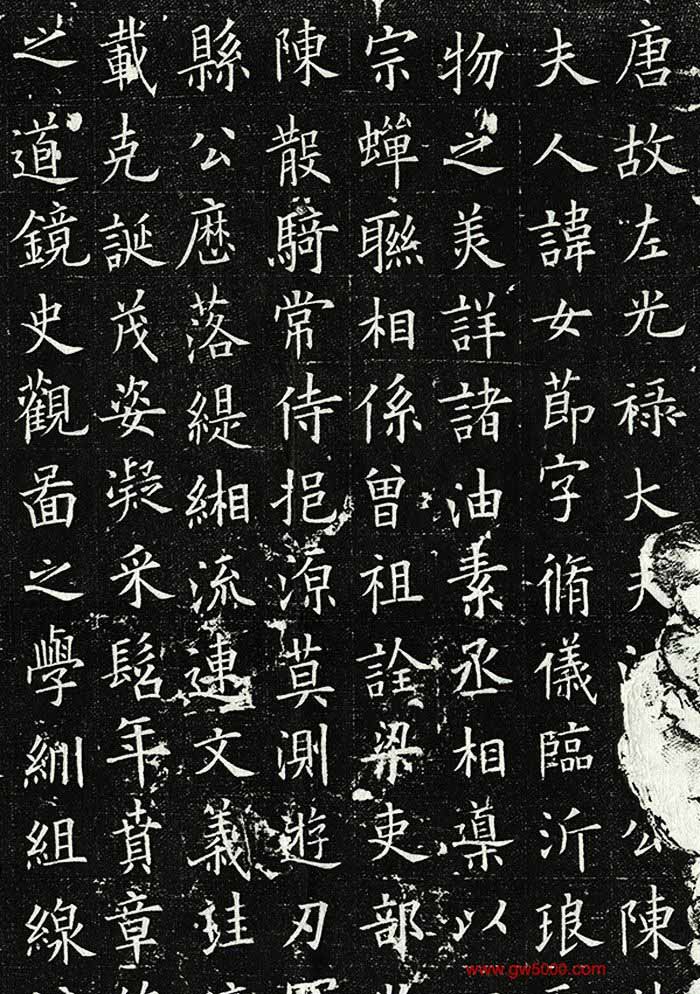 唐故左光禄大夫公陳
夫人諱女節字脩儀臨沂琅
物之美詳諸油素丞相導以
宗蟬聯相係曾祖詮梁吏部
陳散騎常侍挹源莫測遊刃
縣公歷落緹緗流連文義珪
載克誕茂姿凝采髫年賁章
之道鏡史觀圖之學紃組線
www.gw5000.com